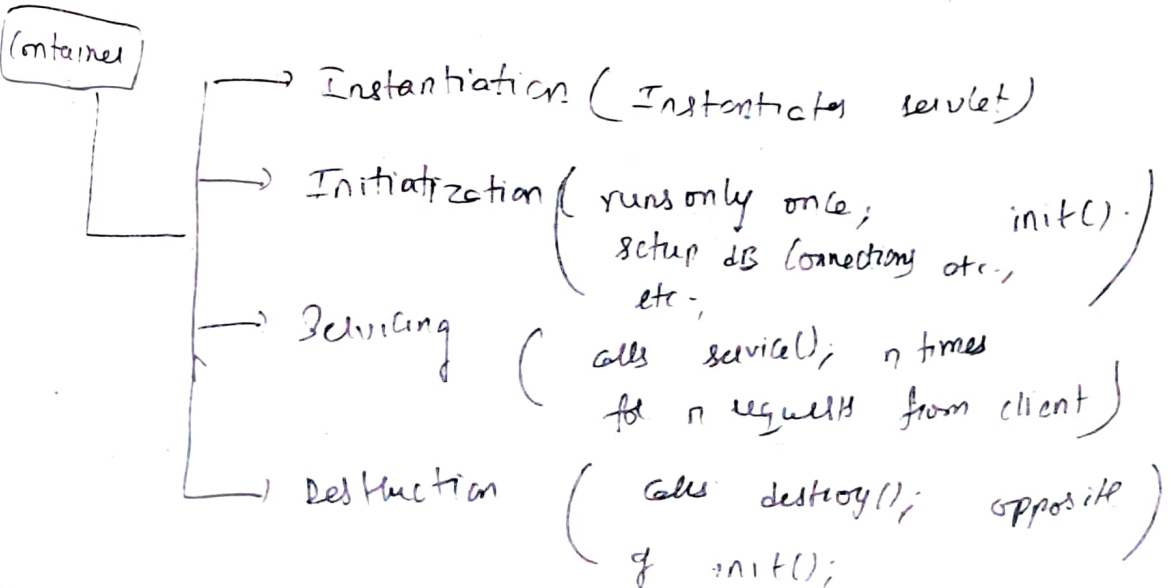 Container
Instantiation ( Instantiates servlet)
Initialization ( runs only once; init().
setup dB Connections etc.,
etc.,
)
Servicing ( calls service(); n times
for n requests from client)
Destruction ( calls destroy(); opposite
of init(); )